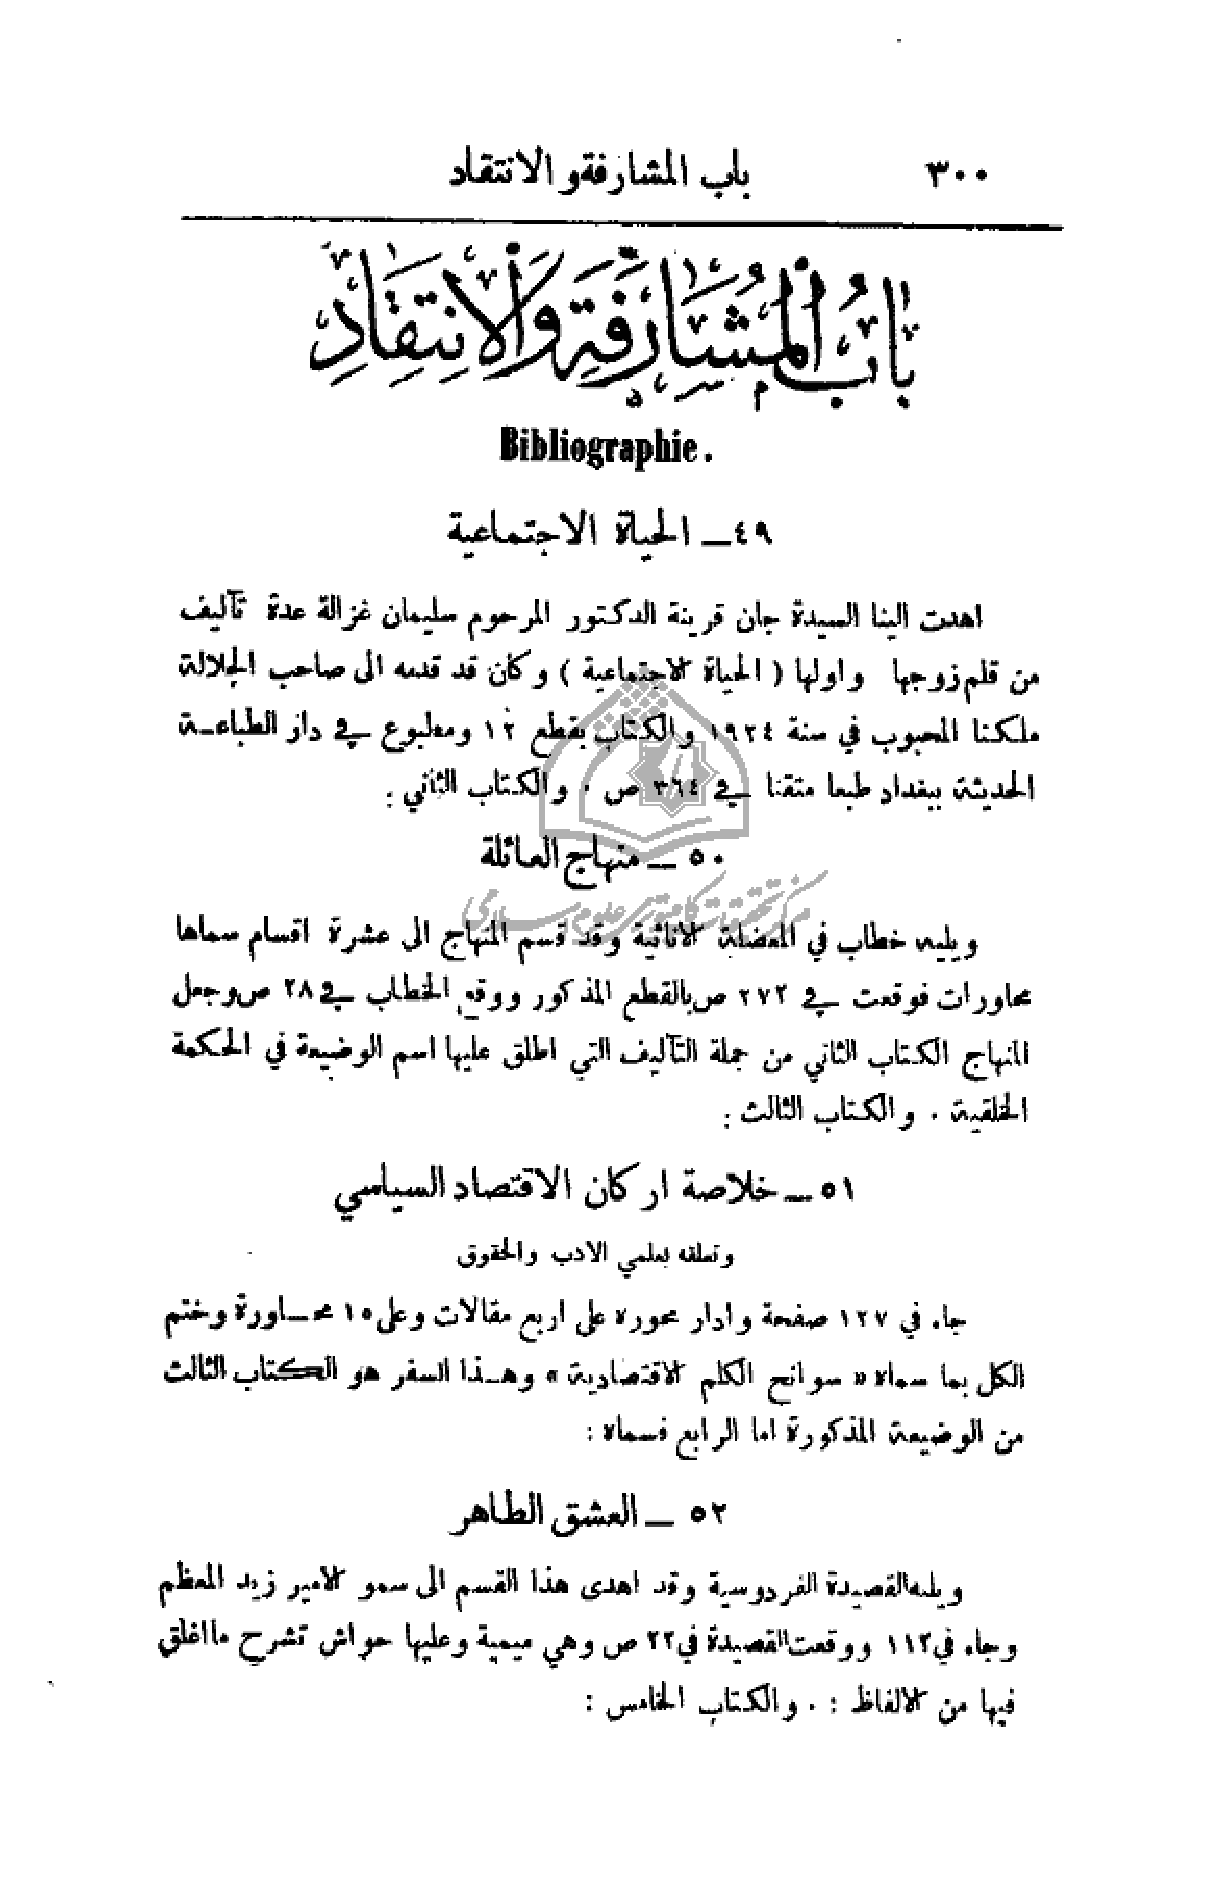 ٣٠٠ باب المشارفة والانتقاد
بَابُ المُشَارَفَةِ وَالانْتِقَادِ
Bibliographie.
٤٩ــ الحياة الاجتماعية
اهدت الينا السيدة جان قرينة الدكتور المرحوم سليمان غزالة عدة تآليف
من قلم زوجها واولها ( الحياة الاجتماعية ) وكان قد قدمه الى صاحب الجلالة
ملكنا المحبوب في سنة ١٩٢٤ والكتاب بقطع ١٢ ومطبوع في دار الطباعـة
الحديثة ببغداد طبعا متقنا في ٣٦٤ ص . والكتاب الثاني :
٥٠ ــ منهاج العائلة
مركز تحقيقات كامپيوتري علوم اسلامي
ويليه خطاب في المعضلة الاناثية وقد قسم المنهاج الى عشرة اقسام سماها
محاورات فوقعت في ٢٧٢ ص بالقطع المذكور ووقع الخطاب في ٢٨ ص وجعل
المنهاج الكتاب الثاني من جملة التآليف التي اطلق عليها اسم الوضيعة في الحكمة
الخلقية . والكتاب الثالث :
٥١ ــ خلاصة اركان الاقتصاد السياسي
وتعلقه بعلمي الادب والحقوق
جاء في ١٢٧ صفحة وادار محوره على اربع مقالات وعلى ١٥ محـاورة وختم
الكل بما سماه « سوانح الكلم الاقتصادية » وهـذا السفر هو الكتاب الثالث
من الوضيعة المذكورة اما الرابع فسماه :
٥٢ ــ العشق الطاهر
ويليه القصيدة الفردوسية وقد اهدى هذا القسم الى سمو الامير زيد المعظم
وجاء في ١١٢ ووقعت القصيدة في ٢٢ ص وهي ميمية وعليها حواش تشرح ما اغلق
فيها من الالفاظ : . والكتاب الخامس :